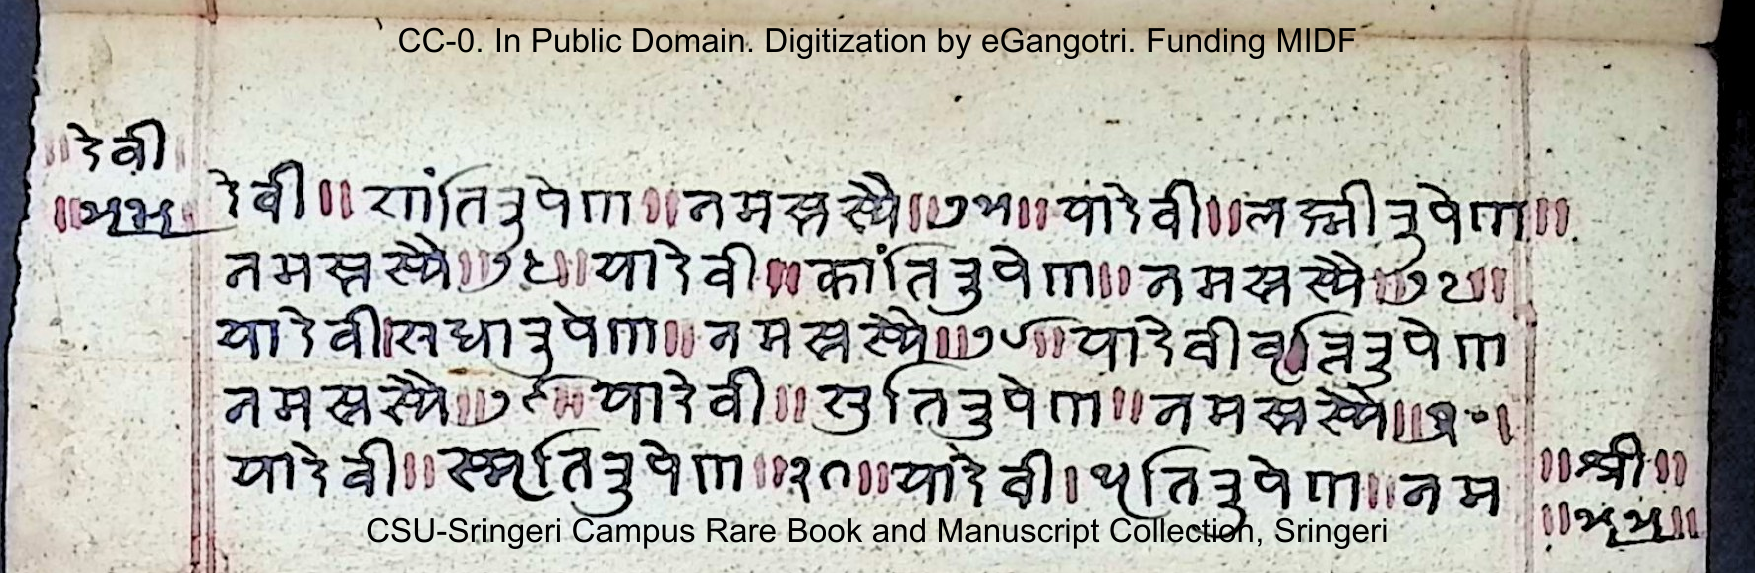 CC-0. In Public Domain. Digitization by eGangotri. Funding MIDF
॥देवी
॥५५॥
देवी॥शांतिरुपेण॥नमस्तस्यै॥७५॥यादेवी॥लक्ष्मीरुपेण॥
नमस्तस्यै॥७६॥यादेवी॥कांतिरुपेण॥नमस्तस्यै॥७७॥
यादेवी॥सधारुपेण॥नमस्तस्यै॥७८॥यादेवीवृत्तिरुपेण
नमस्तस्यै॥७९॥यादेवी॥सुतिरुपेण॥नमस्तस्यै॥
यादेवी॥स्मृतिरुपेण॥यादेवी॥धृतिरुपेण॥नम
॥श्री॥
॥५५॥
CSU-Sringeri Campus Rare Book and Manuscript Collection, Sringeri